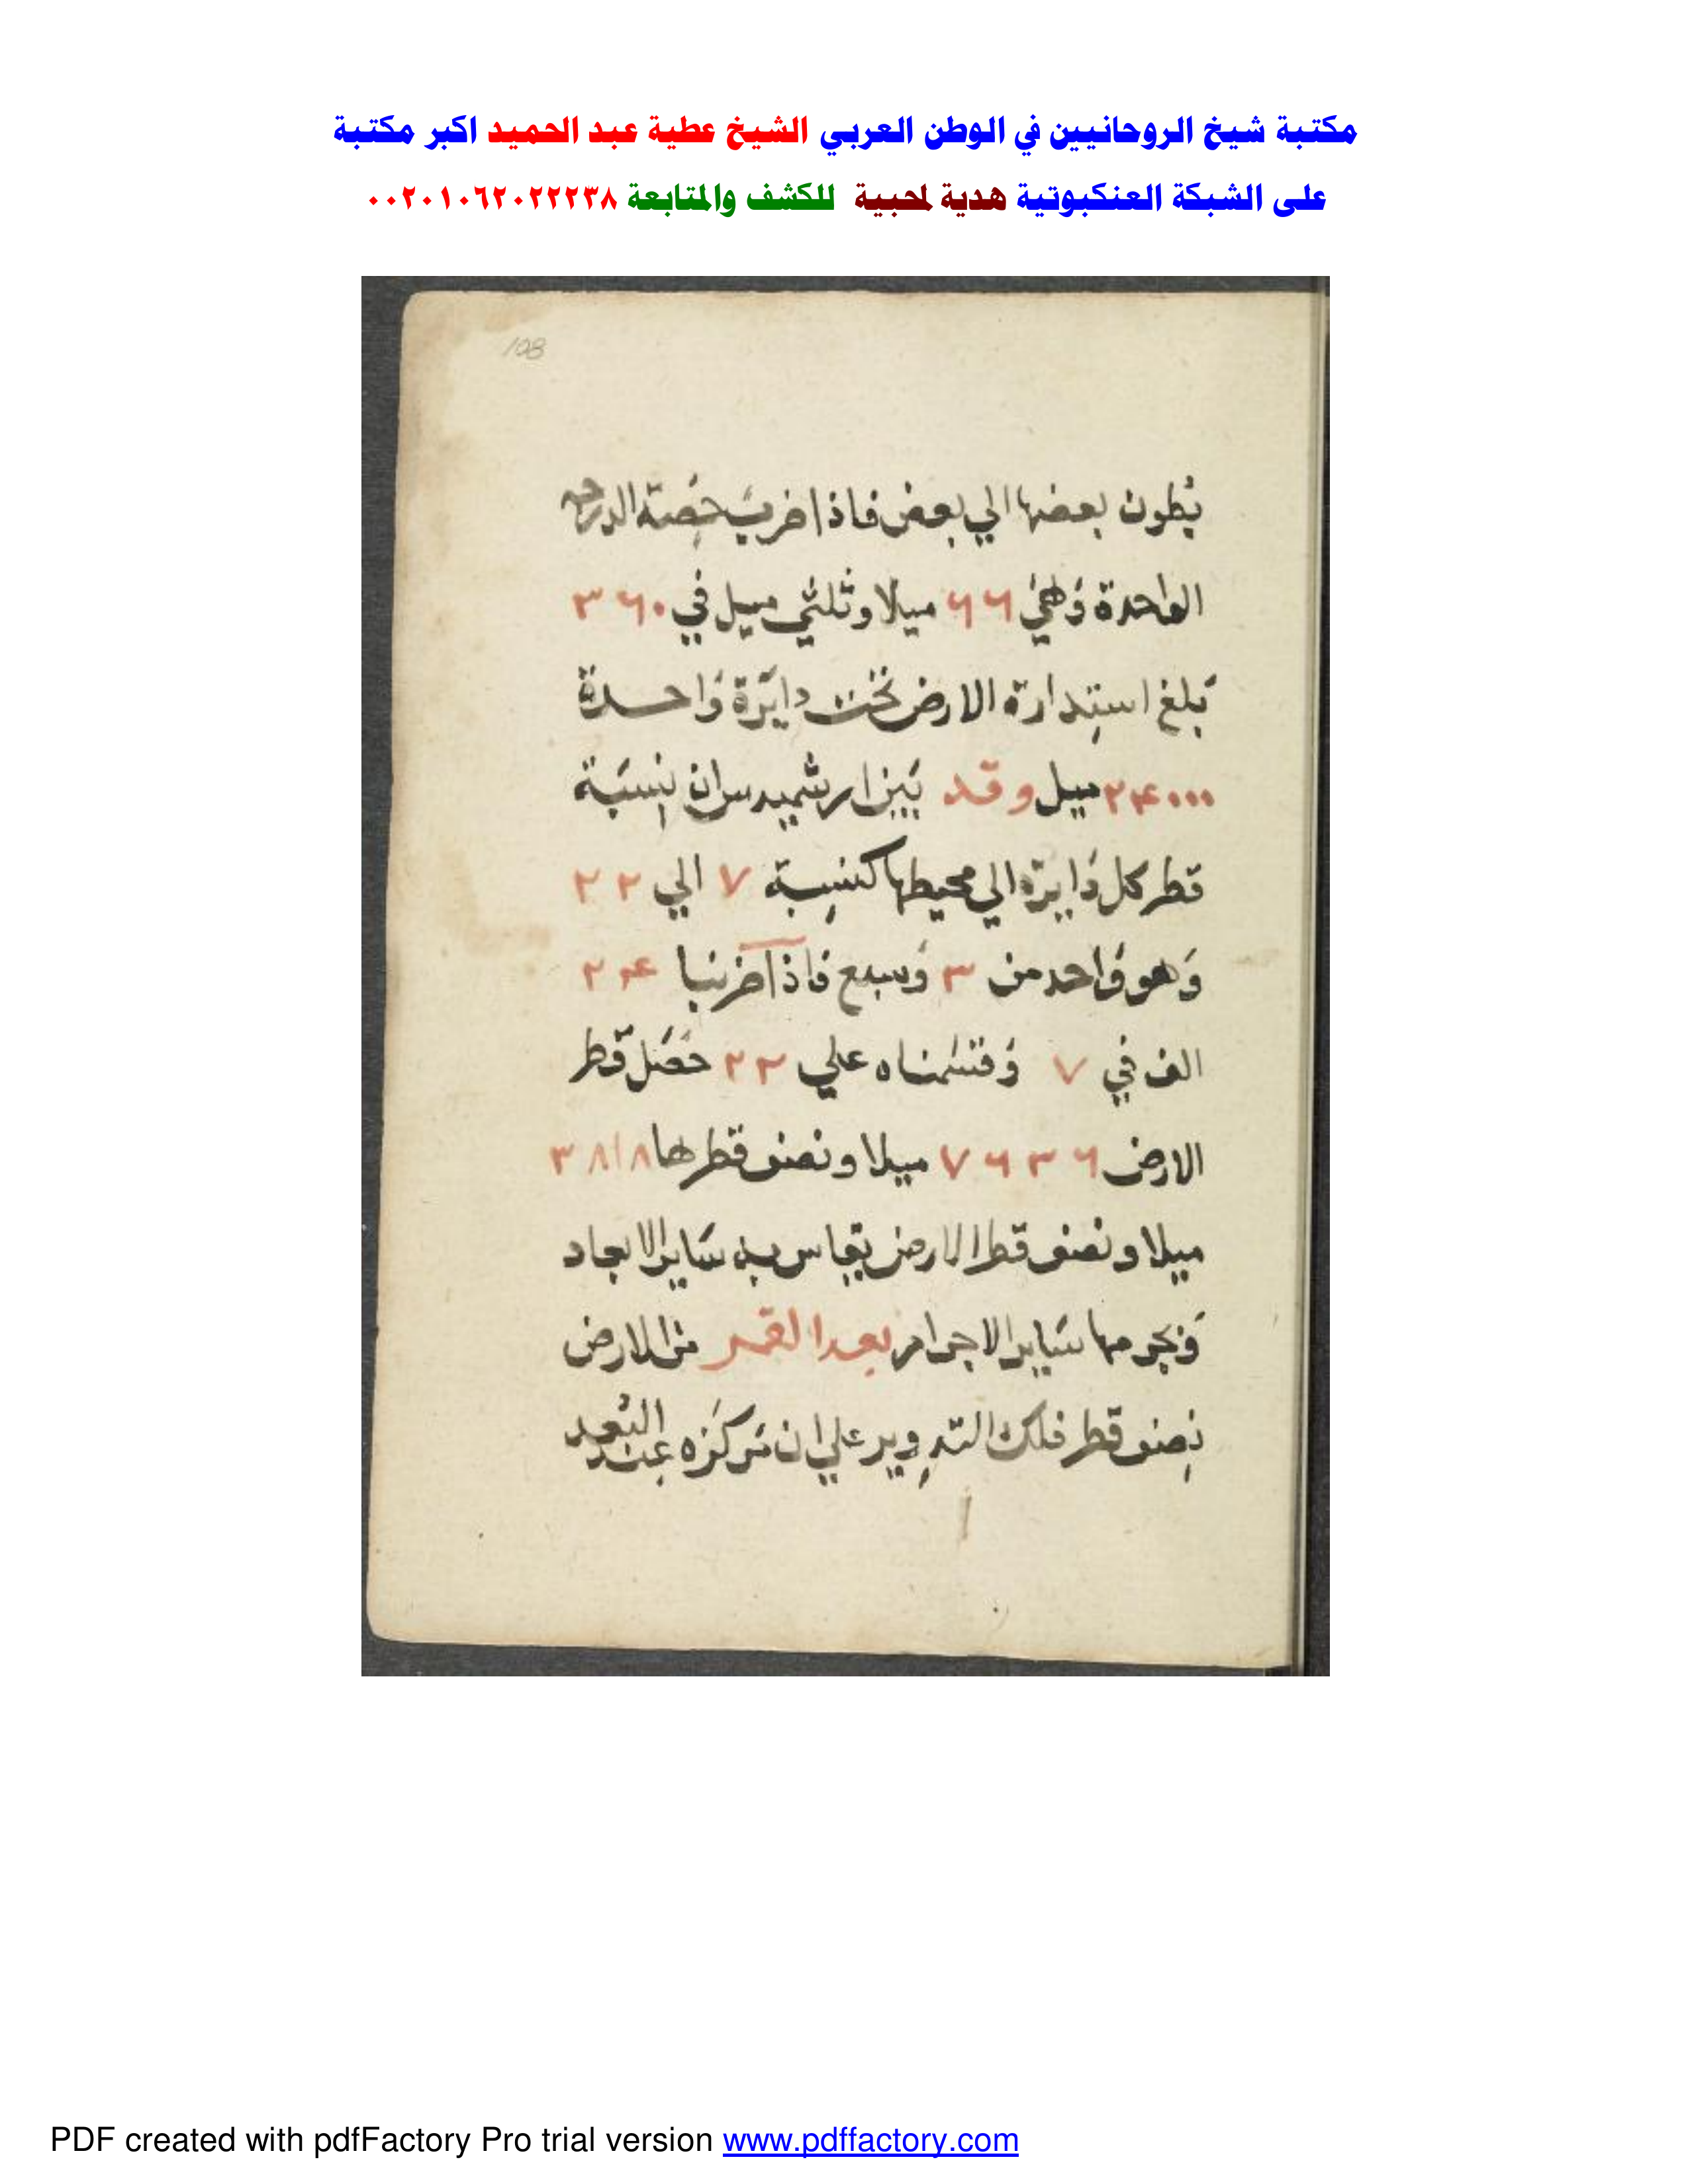 مكتبة شيخ الروحانيين في الوطن العربي الشيخ عطية عبد الحميد اكبر مكتبة
على الشبكة العنكبوتية هدية لمحبية للكشف والمتابعة ٠٠٢٠١٠٦٢٠٢٢٢٣٨
108
بطون بعضها الي بعض فاذا ضربت حصة الدرجه
الواحدة وهي ٦٦ ميلا وثلثي ميل في ٣٦٠
بلغ استدارة الارض تحت دايرة واحدة
٢٤٠٠٠ ميل وقد بين ارشميدس ان نسبة
قطر كل دايرة الي محيطها كنسبة ٧ الي ٢٢
وهو واحد من ٣ وسبع فاذا ضربنا ٢٤
الف في ٧ وقسمناه علي ٢٢ حصل قطر
الارض ٧٦٣٦ ميلا ونصف قطرها ٣٨١٨
ميلا ونصف قطر الارض يقاس به ساير الابعاد
وبجرمها ساير الاجرام بعد القمر من الارض
نصف قطر فلك التدوير علي ان مركزه عند البعد
PDF created with pdfFactory Pro trial version www.pdffactory.com